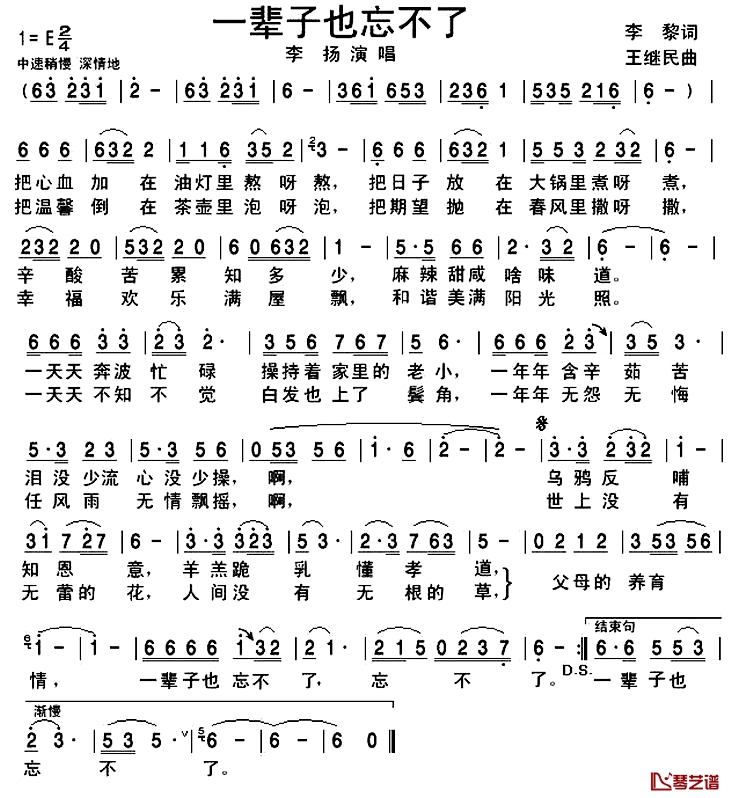 一辈子也忘不了
1=E 2/4
李 黎词
李 扬演唱
王继民曲
中速稍慢 深情地
(63 231 | 2 - | 63 231 | 6 - | 361 653 | 236 1 | 535 216 | 6 - ) |
666 | 632 2 | 116 35 2 | 3 - | 666 | 632 1 | 553 232 | 6 - |
把心血加在油灯里熬呀熬，把日子放在大锅里煮呀煮，
把温馨倒在茶壶里泡呀泡，把期望抛在春风里撒呀撒，
232 20 | 532 20 | 60 632 | 1 - | 5·5 66 | 2· 32 | 6 - | 6 - |
辛酸苦累知多少，麻辣甜咸啥味道。
幸福欢乐满屋飘，和谐美满阳光照。
666 33 | 23 2· | 356 767 | 5 6 | 666 2 3 | 35 3· |
一天天奔波忙碌 操持着家里的老小，一年年含辛茹苦
一天天不知不觉 白发也上了鬓角，一年年无怨无悔
5·3 22 | 5·3 56 | 053 56 | 1·1 | 2 - | 2 - | 3·3 232 | 1 - |
泪没少流心没少操，啊，乌鸦反哺
任风雨无情飘摇，啊，世上没有
31 727 | 6 - | 3·3 323 | 53· | 2·3 763 | 5 - | 0212 | 353 56 |
知恩意，羊羔跪乳懂孝道，
无蕾的花，人间没有无根的草，
父母的养育
结束句
1 - | 1 - | 6666 132 | 21· | 215 0237 | 6 - :|| 6·6 553 |
情，一辈子也忘不了，忘不了。D.S.一辈子也
渐慢
2 3· | 53 5· v | 6 - | 60 ||
忘不了。
琴艺谱